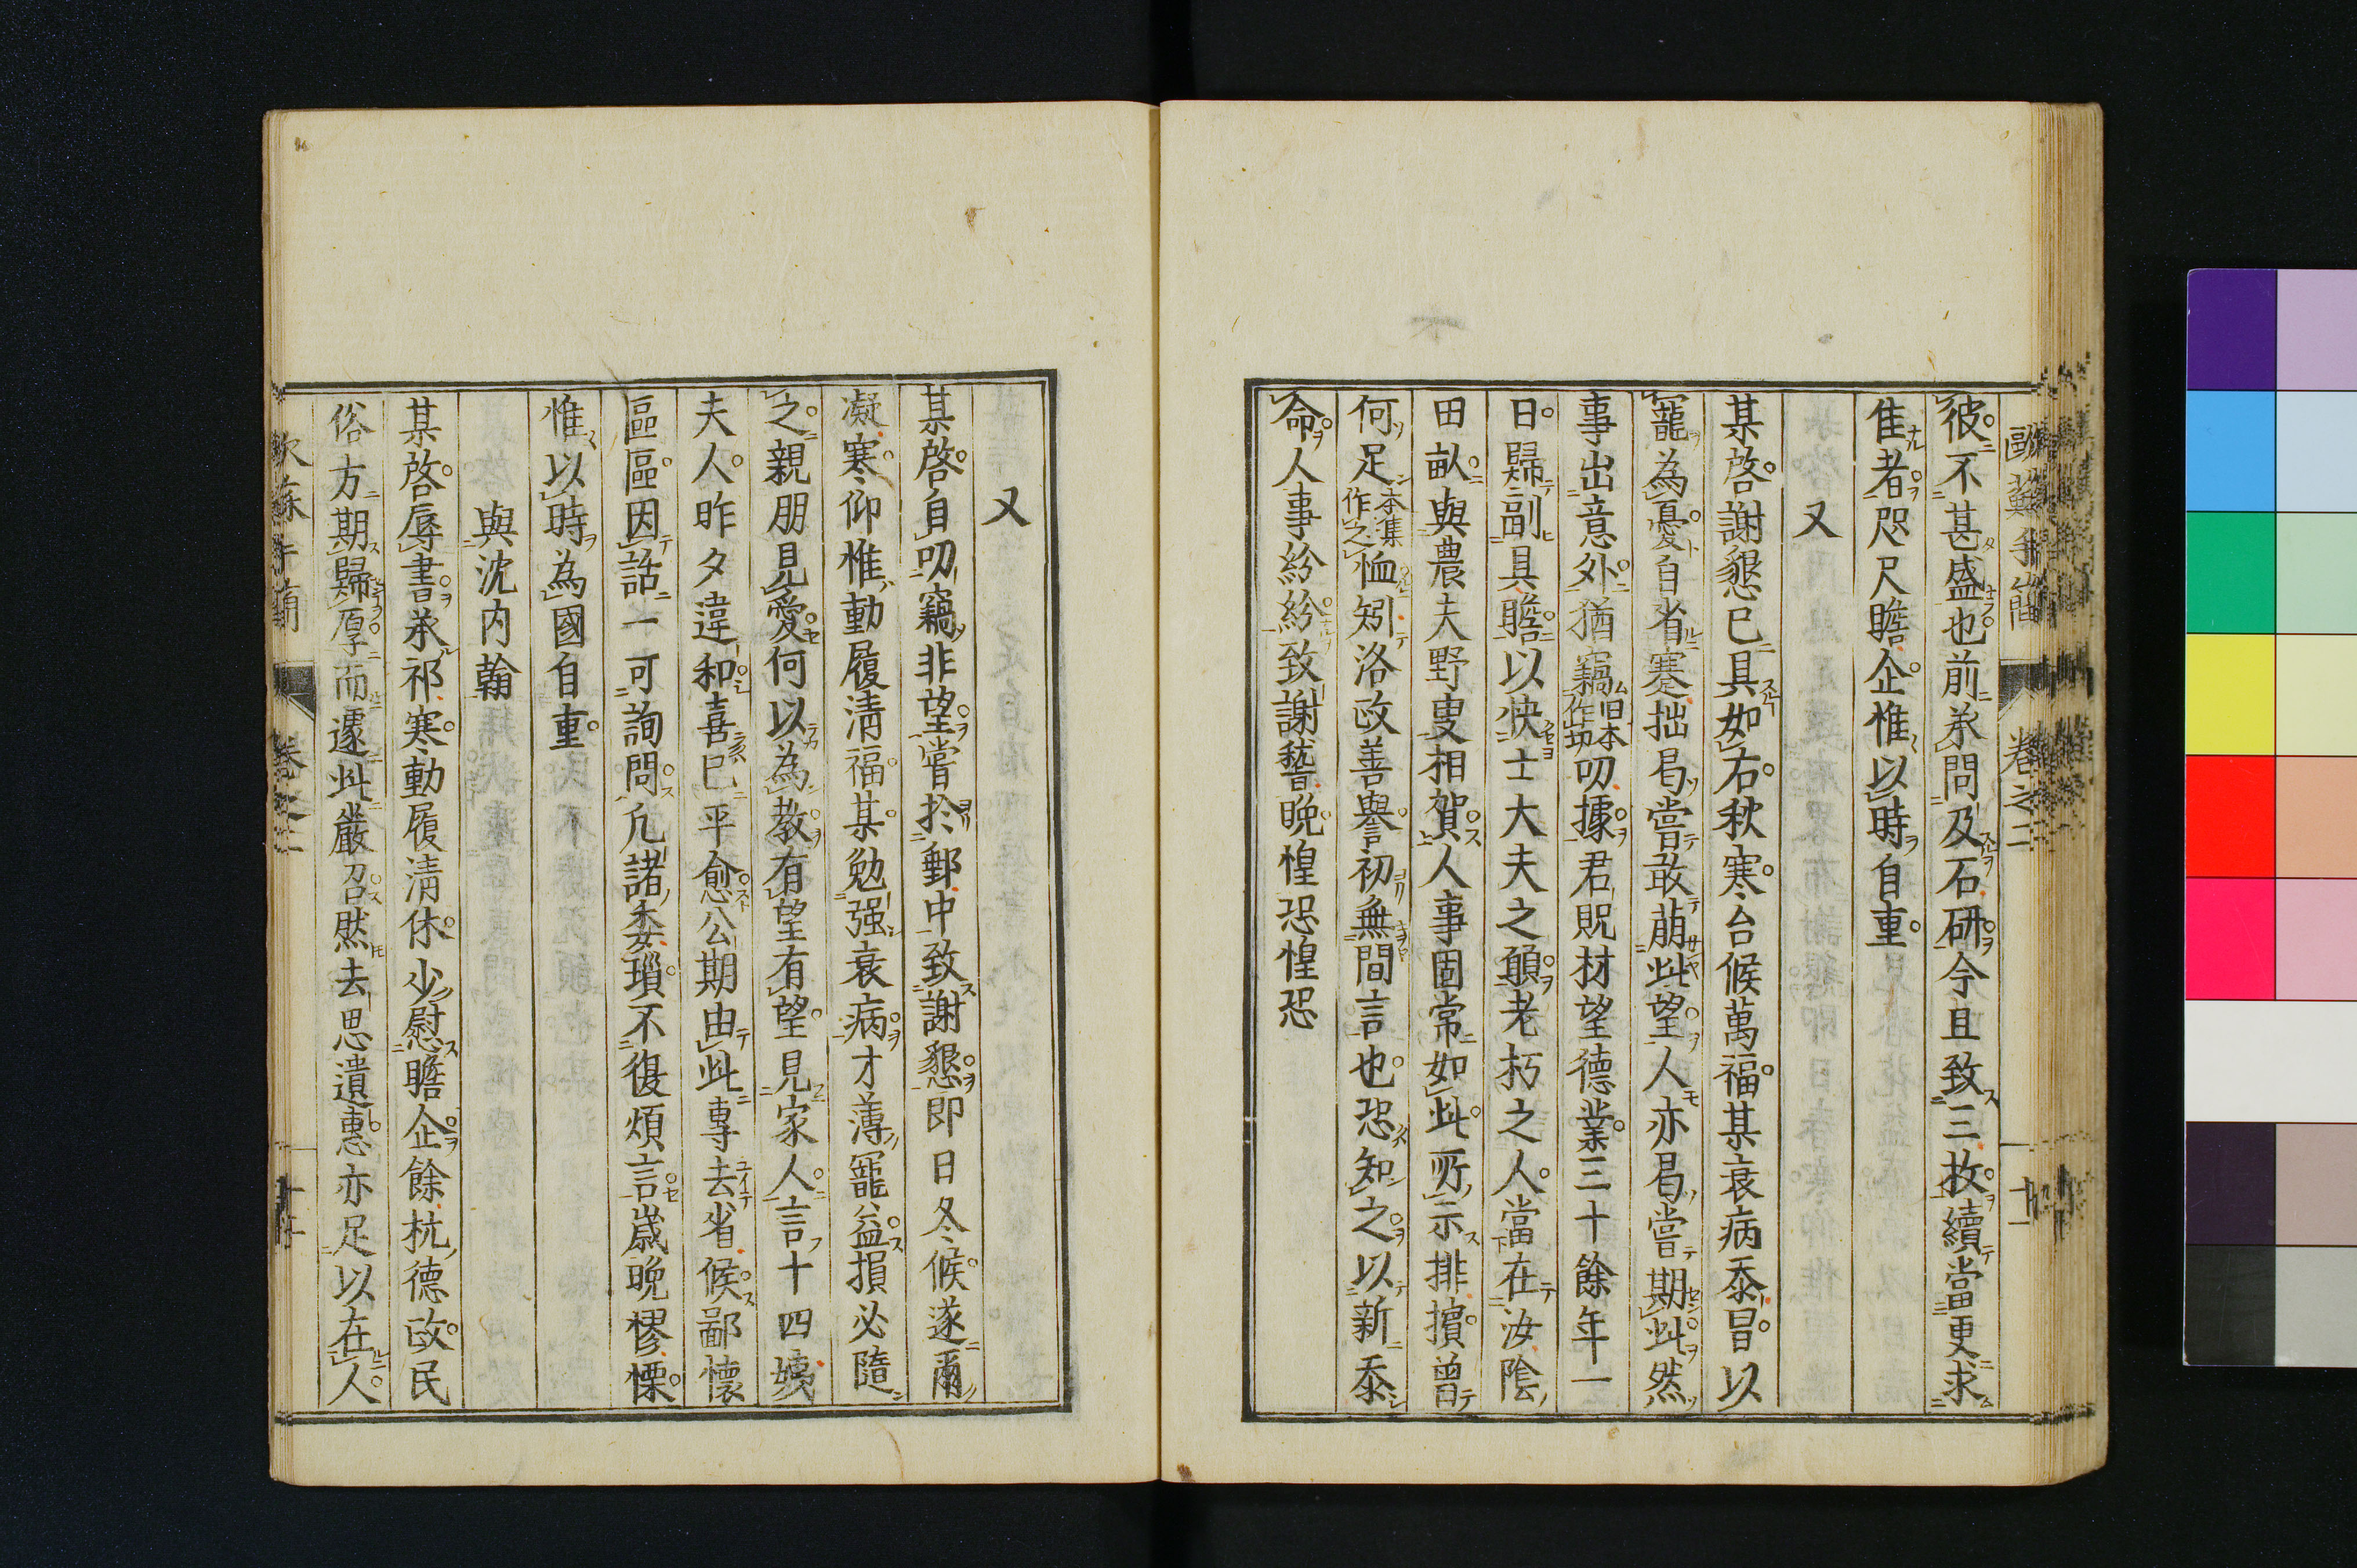 歐蘇手簡 卷之二 十一
彼不甚盛也前承問及石研今且致三枚續當更求
隹者咫尺瞻企惟以時自重
又
某啓謝懇已具如右秋寒台候萬福某衰病忝冒以
寵為憂自省蹇拙曷嘗敢萠此望人亦曷嘗期此然
事出意外猶竊旧本作切叨據君貺材望德業三十餘年一
日歸副具瞻以快士大夫之願老朽之人當在汝陰
田畝與農夫野叟相賀人事固常如此所示排擯曽
何足本集作之恤矧洛政善譽初無間言也恐知之以新忝
命人事紛紛致謝稽晚惶恐惶恐
又
某啓自叨竊非望嘗於郵中致謝懇即日冬候遂爾
凝寒仰惟動履淸福某勉强衰病才薄寵益損必隨
之親朋見愛何以為教有望有望見家人言十四姨
夫人昨夕違和喜已平愈公期由此專去省候鄙懷
區區因話一可詢問凢諸委瑣不復煩言歲晚憀慄
惟以時為國自重
與沈内翰
某啓辱書承祁寒動履淸休少慰瞻企餘杭德政民
俗方期歸厚而遽此嚴召然去思遺惠亦足以在人